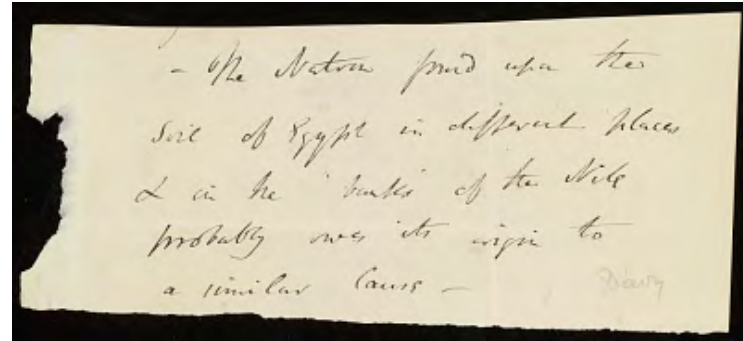 - The Natron found upon the
Soil of Egypt in different places
& in the banks of the Nile
probably owes its origin to
a similar Cause -
Davy